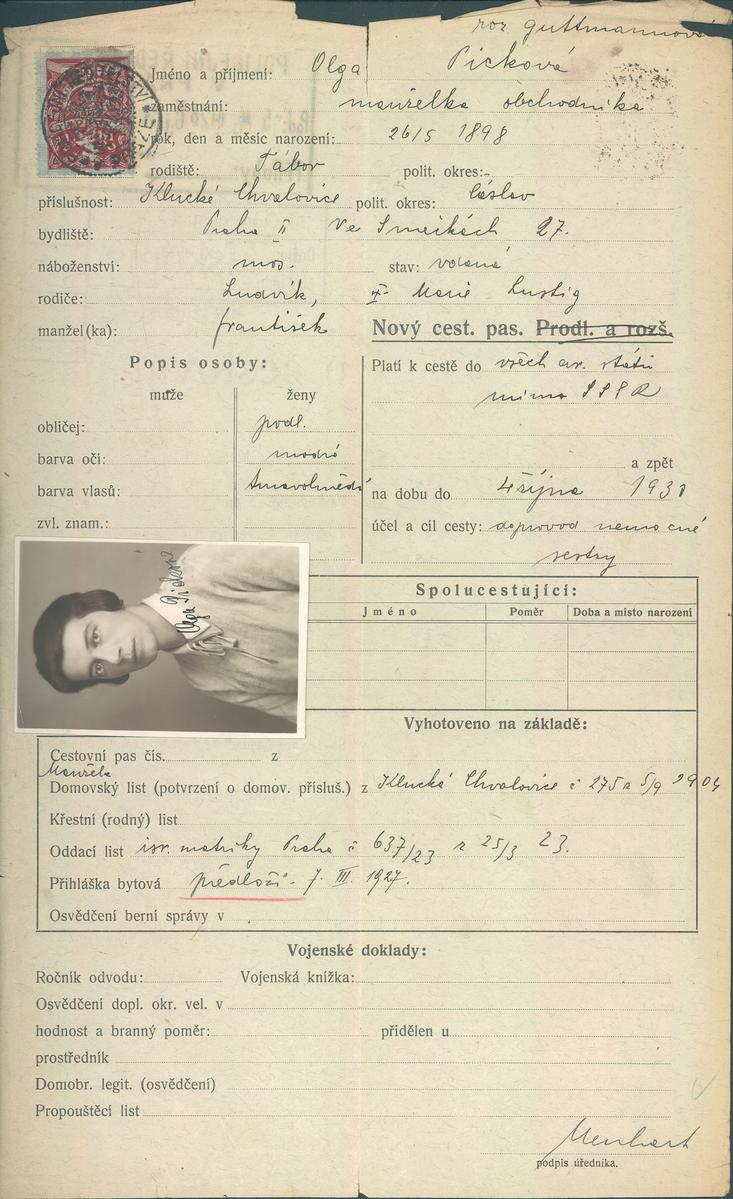 roz guttmannová
Jméno a příjmení: Olga Picková
zaměstnání: manželka obchodníka
rok, den a měsíc narození: 26/5 1898
rodiště: Tábor polit. okres:
příslušnost: Klucké Chvalovice polit. okres: Čáslav
bydliště: Praha II Ve Smečkách 27.
náboženství: mos. stav: vdaná
rodiče: Ludvík, Marie Lustig
manžel(ka): František
Nový cest. pas. Prodl. a rozš.
Popis osoby:
muže ženy
obličej: podl.
barva očí: modré
barva vlasů: tmavohnědé
zvl. znam.:
Platí k cestě do všech států
mimo SSSR
a zpět
na dobu do 4 října 193
účel a cíl cesty: doprovod nemocné
sestry
Olga Picková
Spolucestující:
Jméno Poměr Doba a místo narození
Vyhotoveno na základě:
Cestovní pas čís. z
Manžela
Domovský list (potvrzení o domov. přísluš.) z Klucké Chvalovice č 275 5/9
Křestní (rodný) list
Oddací list isr. matriky Praha č 637/23 z 25/3 23.
Přihláška bytová předloží 7. III. 1927.
Osvědčení berní správy v
Vojenské doklady:
Ročník odvodu: Vojenská knížka:
Osvědčení dopl. okr. vel. v
hodnost a branný poměr: přidělen u
prostředník
Domobr. legit. (osvědčení)
Propouštěcí list
podpis úředníka.